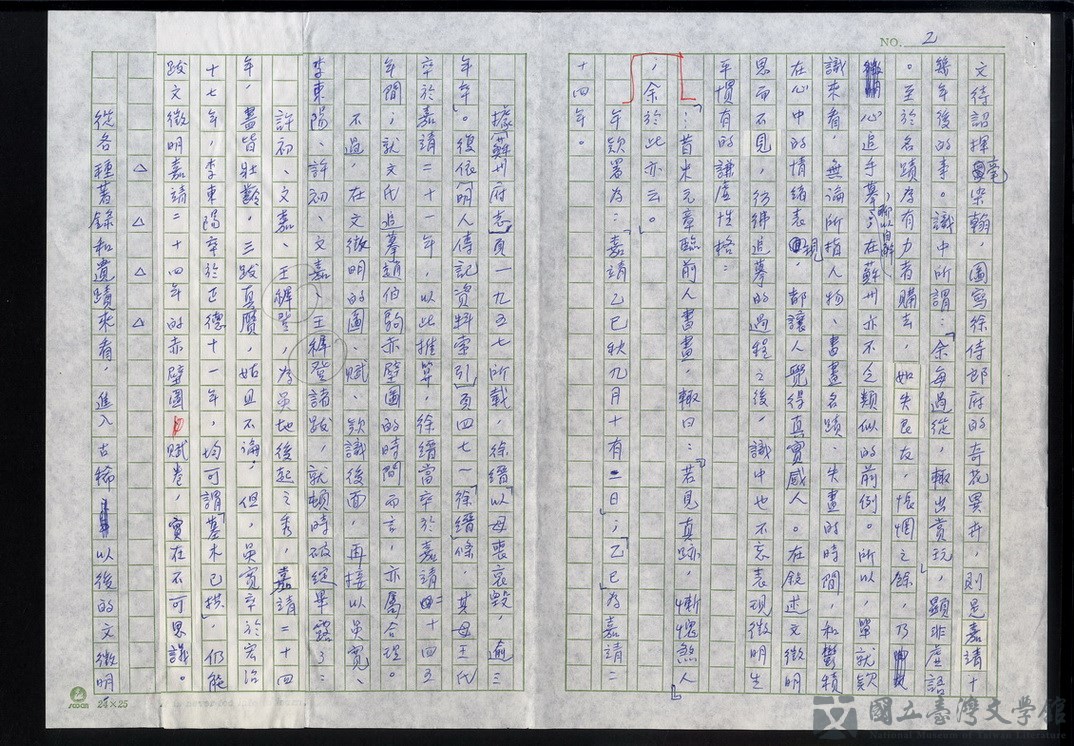 NO. 2
文待詔揮毫染翰，圖寫徐侍郎府的奇花異卉，則是嘉靖十
幾年後的事。識中所謂：「余每過從，輒出賞玩」，顯非虛語
。至於名蹟為有力者購去，如失良友，悵惘之餘，乃
心追手摹，聊以自解；在蘇州亦不乏類似的前例。所以，單就款
識來看，無論所指人物、書畫名蹟、失畫的時間，和鬱積
在心中的情緒表現，都讓人覺得真實感人。在敘述文徵明
思而不見，彷彿追摹的過程之後，識中也不忘表現徵明生
平慣有的謙虛性格：
「…昔米元章臨前人書畫，輒曰：『若見真跡，慚愧煞人』
，余於此亦云。」
年款署為：「嘉靖乙巳秋九月十有二日」；「乙巳」為嘉靖二
十四年。
據「蘇州府志」頁一九五七所載，徐縉「以母喪哀毀，逾三
年卒」。復依「明人傳記資料索引」頁四七一「徐縉」條，其母王氏
卒於嘉靖二十一年，以此推算，徐縉當卒於嘉靖二十四五
年間；就文氏追摹趙伯駒赤壁圖的時間而言，亦屬合理。
不過，在文徵明的圖、賦、款識後面，再接以吳寬、
李東陽、許初、文嘉、王穉登諸跋，就頓時破綻畢露了：
許初、文嘉、王穉登，為吳地後起之秀，嘉靖二十四
年，盡皆壯齡，三跋真贋，姑且不論，但，吳寬卒於宏治
十七年，李東陽卒於正德十一年，均可謂「墓木已拱」，仍能
跋文徵明嘉靖二十四年的赤壁圖賦卷，實在不可思議。
△ △ △ △
從各種著錄和遺蹟來看，進入古稀以後的文徵明
24×25
國立臺灣文學館
National Museum of Taiwan Literature